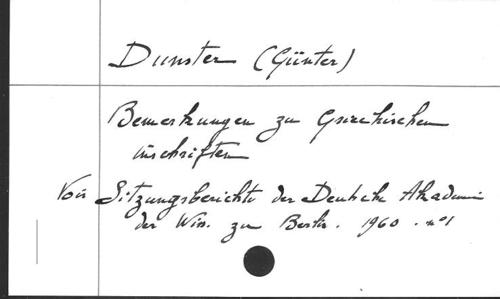 Dunster (Günter)
Bemerkungen zu Griechischen
inschriften
Voir Sitzungsberichte der Deutsche Akademie
der Wiss. zu Berlin. 1960. n°1